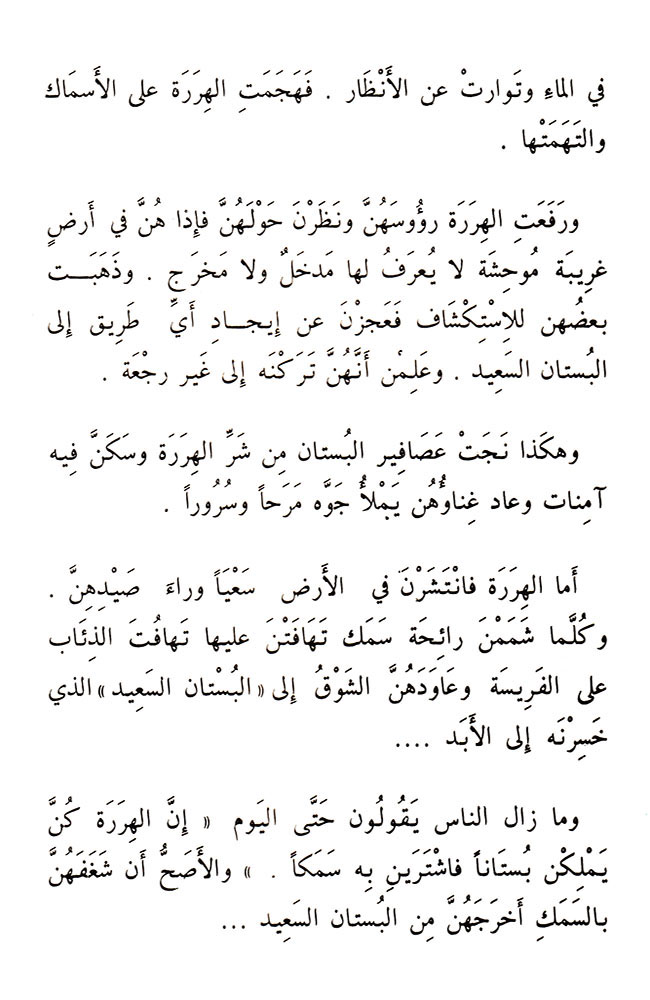 في الماءِ وتَوارتْ عن الأَنْظَار . فَهَجَمَتِ الهِرَرَة على الأَسمَاك
والتَهَمَتْها .
ورَفَعَتِ الهِرَرَة رؤُوسَهُنَّ ونَظَرْنَ حَوْلَهُنَّ فإذا هُنَّ في أَرضٍ
غرِيبَة مُوحِشَة لا يُعرَفُ لها مَدخَلٌ ولا مَخرَج . وذَهَبَــت
بعضُهن للاِسْتِكْشَاف فَعَجزْنَ عن إيجــادِ أَيِّ طَرِيق إلى
البُستان السَعِيد . وعَلِمْن أَنَّهُنَّ تَرَكْنَه إلى غَير رجْعَة .
وهكَذا نَجَتْ عَصَافِير البُستان مِن شَرِّ الهِرَرَة وسَكَنَّ فِيه
آمِنات وعاد غِناؤُهُن يَمْلأُ جَوَّه مَرَحاً وسُرُوراً .
أَما الهِرَرَة فانْتَشَرْنَ في الأَرض سَعْيَاً وراءَ صَيْدِهِنَّ .
وكُلَّما شَمَمْنَ رائِحَة سَمَك تَهَافَتْنَ عليها تَهافُتَ الذِئاب
على الفَرِيسَة وعَاوَدَهُنَّ الشَوْقُ إلى « البُسْتان السَعِيد » الذي
خَسِرْنَه إلى الأَبَد ....
وما زال الناس يَقُولُون حَتَّى اليَوم « إنَّ الهِرَرَة كُنَّ
يَمْلِكْن بُستَاناً فاشْتَرَينِ بِه سَمَكاً . » والأَصَحُّ أَن شَغَفَهُنَّ
بالسَمَكِ أَخرَجَهُنَّ مِن البُستان السَعِيد ...